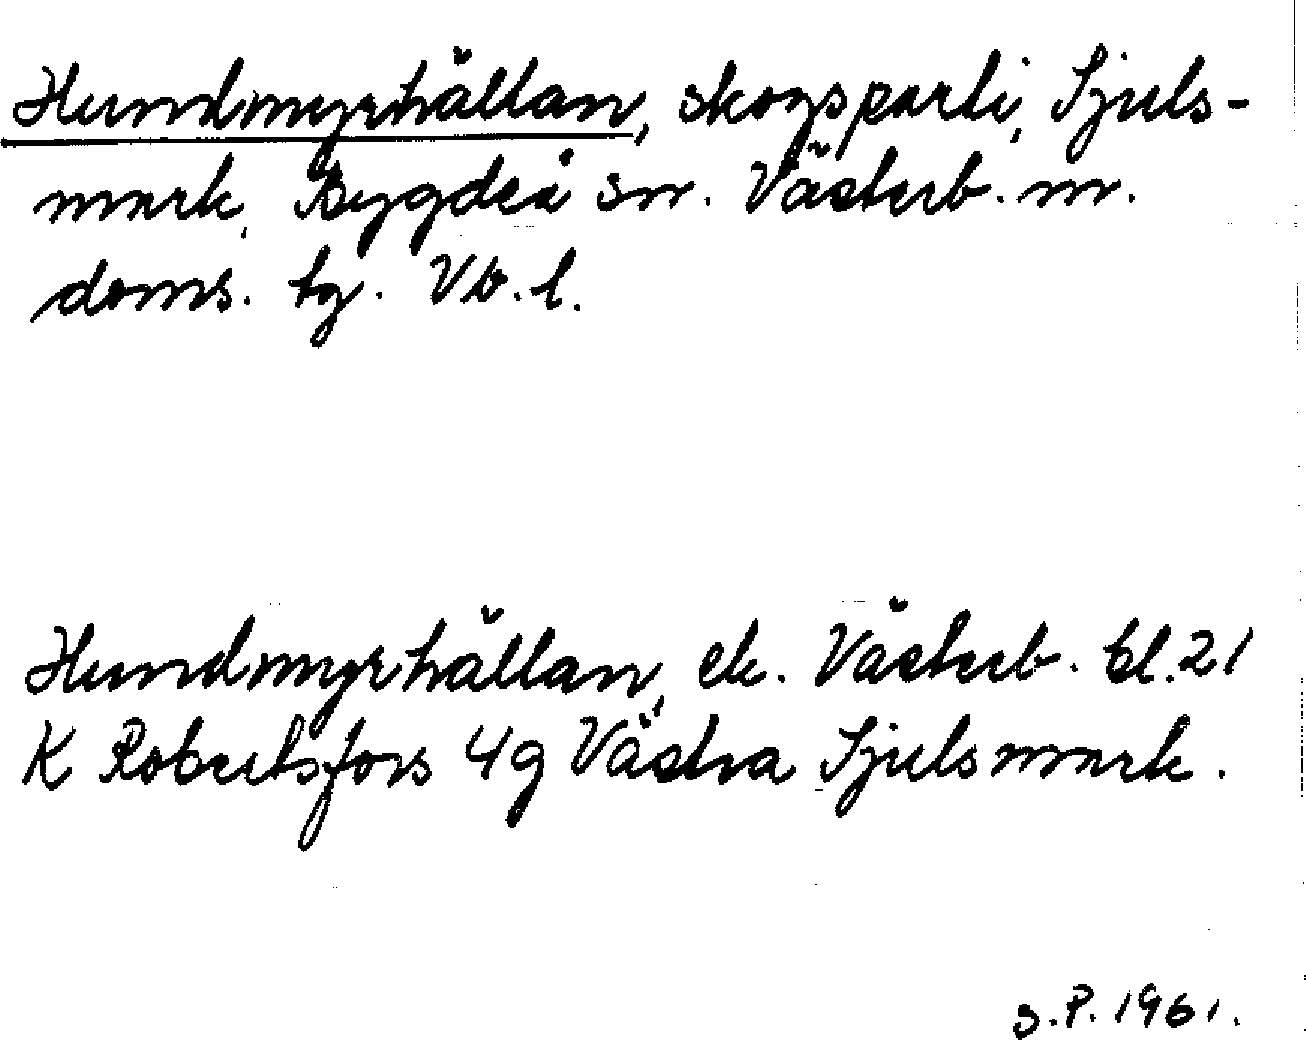 Hundmyrhällan, skogsparti, Sjuls-
mark, Bygdeå sn. Västerb. n.
doms. tg. Vb. l.
Hundmyrhällan, ek. Västerb. bl. 21
K Robertsfors 4g Västra Sjulsmark.
S.P. 1961.